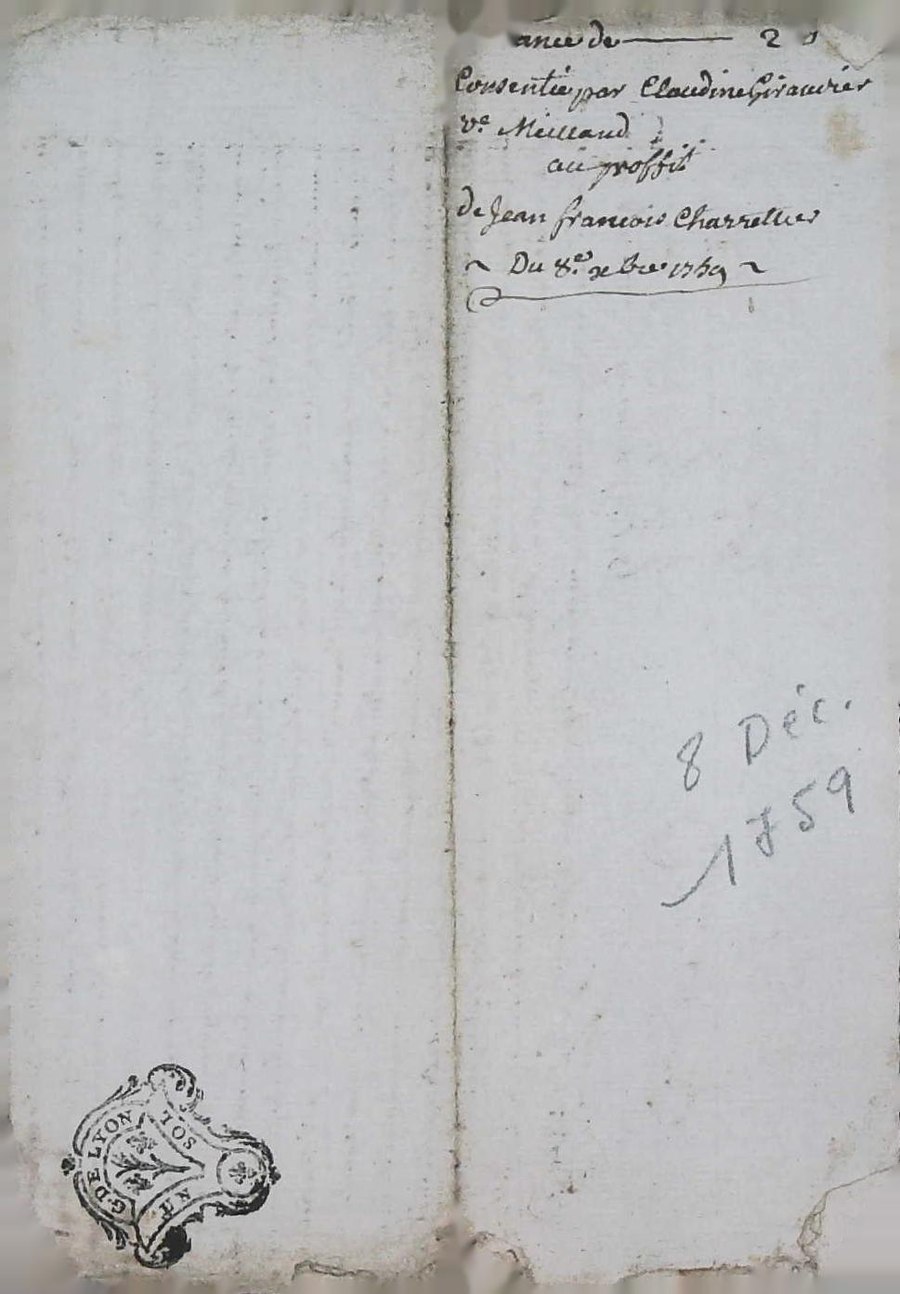 ance de ——— 2
Consentie par Claudine Giraudier
ve. Meilland
au proffit
de Jean francois Charrettier
~ Du 8.e xbre 1759 ~
8 Déc.
1759
G. DE LYON
SOL